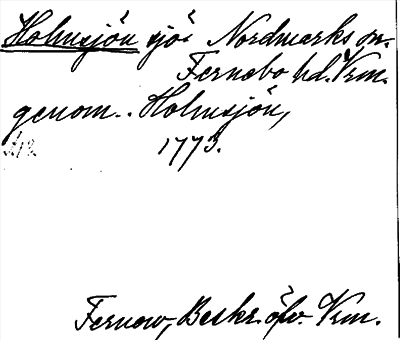 Holmsjön sjö i Nordmarks sn.
Fernebo hd. Vrm.
genom .. Holmsjön,
1773.
Fernow, Beskr. öfv. Vrm.